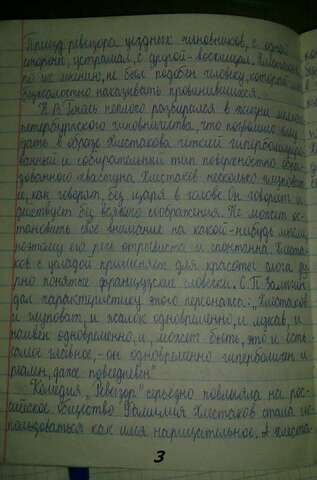 Приезд ревизора уездных чиновников, с одной
стороны, устрашал, с другой - восхищал. Хлестаков,
по их мнению, не был подобен человеку, который мог
безжалостно наказывать провинившихся.
Н. В. Гоголь неплохо разбирался в жизни мелкого
петербургского чиновничества, что позволило ему
дать в образе Хлестакова гипербо
ванный и собирательный тип поверхностно обра-
зованного хвастуна. Хлестаков несколько глуповат
и, как говорят, без царя в голове. Он говорит и
действует без всякого соображения. Не может ос-
тановить своё внимание на какой-нибудь мысли,
поэтому его речь отрывиста и спонтанна. Хлеста-
ков с усладой применяет для красоты слога ду-
рно понятые французские словечки. С. П. Залыгин
дал характеристику этого персонажа: „Хлестаков
и глуповат, и жалок одновременно, и лукав, и
наивен одновременно, и, может быть, это и есть
самое главное, - он одновременно гиперболичен и
реален, даже повседневен".
Комедия „Ревизор" серьёзно повлияла на рос-
сийское общество. Фамилия Хлестаков стала ис-
пользоваться как имя нарицательное. А хлеста-
3